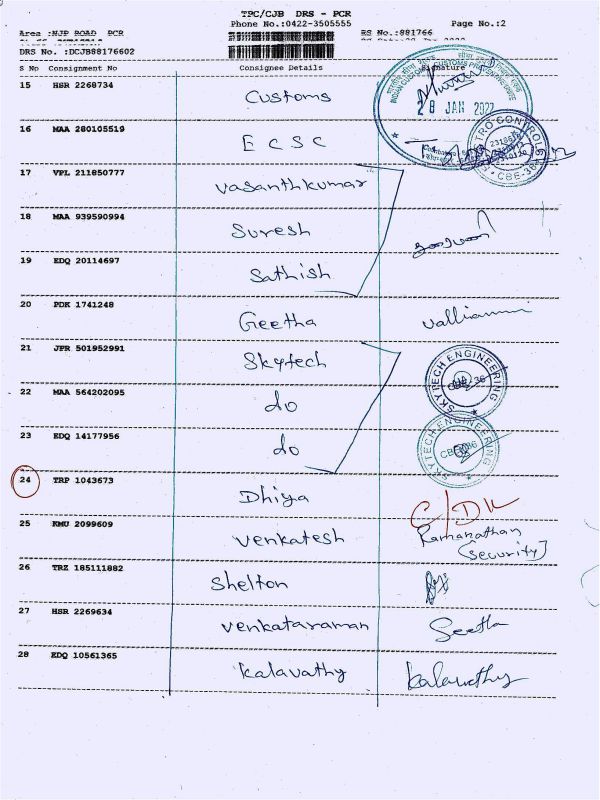 TPC/CJB DRS - PCR
Phone No.:0422-3505555 Page No.:2
Area :NJP ROAD PCR RS No.:881766
DRS No. :DCJB88176602
S No Consignment No Consignee Details Signature
15 HSR 2268734 Customs
28 JAN 2022
16 MAA 280105519 E C S C
17 VPL 211850777 Vasanthkumar
18 MAA 939590994 Suresh
19 EDQ 20114697 Sathish
20 PDK 1741248 Geetha Valliammi
21 JPR 501952991 Skytech SKYTECH ENGINEERING
22 MAA 564202095 do
23 EDQ 14177956 do SKYTECH ENGINEERING
24 TRP 1043673 Dhiya C/DK
25 KMU 2099609 Venkatesh Ramanathan
[Security]
26 TRZ 185111882 Shelton
27 HSR 2269634 Venkataraman Seetha
28 EDQ 10561365 Kalavathy Kalavathy